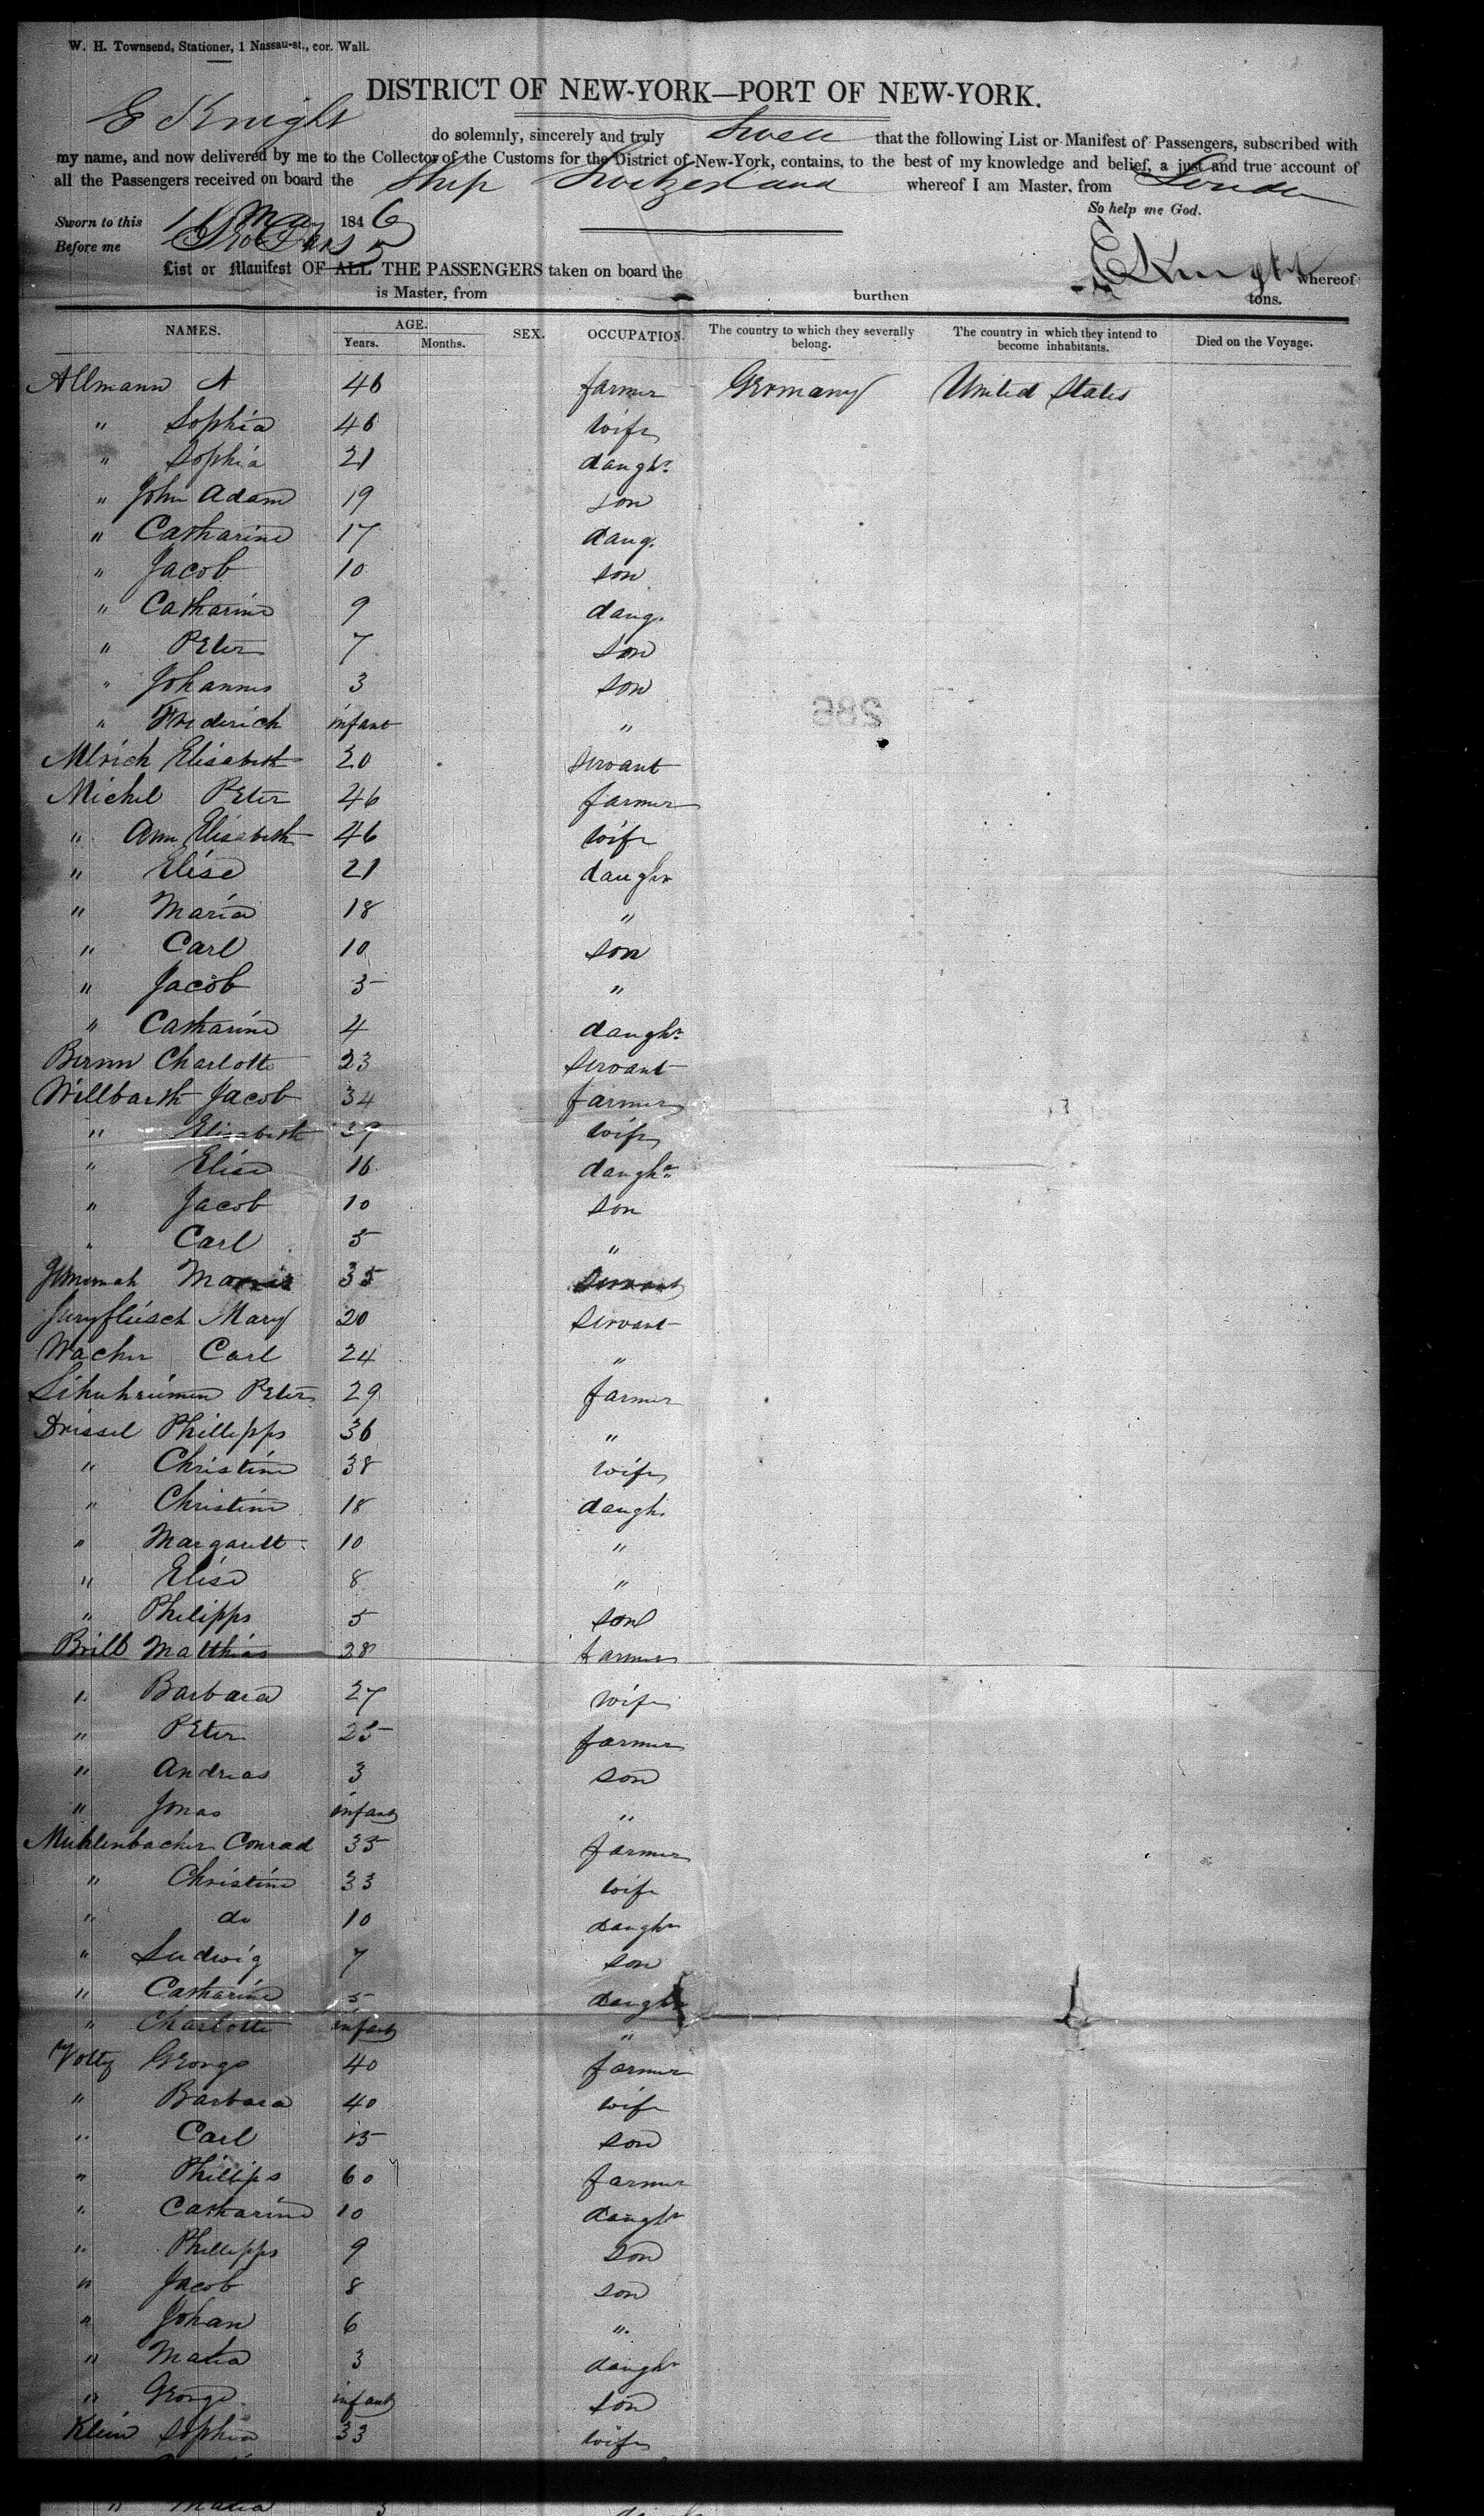 W. H. Townsend, Stationer, 1 Nassau-st., cor. Wall.
DISTRICT OF NEW-YORK—PORT OF NEW-YORK.
E Knight do solemnly, sincerely and truly that the following List or Manifest of Passengers, subscribed with
my name, and now delivered by me to the Collector of the Customs for the District of New-York, contains, to the best of my knowledge and belief, a just and true account of
all the Passengers received on board the Ship Switzerland whereof I am Master, from London
So help me God.
Sworn to this May 1846
Before me
E Knight
List or Manifest OF ALL THE PASSENGERS taken on board the whereof
is Master, from burthen tons.
NAMES. AGE. Years. Months. SEX. OCCUPATION. The country to which they severally belong. The country in which they intend to become inhabitants. Died on the Voyage.
Allmann A 46 farmer Germany United States
" Sophia 46 wife
" Sophia 21 daughr.
" John Adam 19 son
" Catharine 17 daug.
" Jacob 10 son
" Catharine 9 daug.
" Peter 7 son
" Johannes 3 son
" Frederich infant "
286
Elisabeth 20 servant
Michel Peter 46 farmer
" Ann Elisabeth 46 wife
" Elise 21 daughr
" Maria 18 "
" Carl 10 son
" Jacob 5 "
" Catharine 4 daughr.
Charlotte 23 servant
Willbarth Jacob 34 farmer
" Elisabeth 39 wife
" Elise 16 daughr
" Jacob 10 son
" Carl 5 "
35 servant
Mary 20 servant
Wacher Carl 24 "
Peter 29 farmer
Drissel Phillipps 36 "
" Christine 38 wife
" Christine 18 daugh.
" Margarett 10 "
" Elise 8 "
" Philipps 5 son
Brill Matthias 28 farmer
" Barbara 27 wife
" Peter 25 farmer
" Andreas 3 son
" Jonas infant "
Muhlenbacher Conrad 35 farmer
" Christine 33 wife
" do 10 daughr
" Ludwig 7 son
" Catharine 5 daughr
" Charlotte infant "
Voltz George 40 farmer
" Barbara 40 wife
" Carl 15 son
" Phillips 60 farmer
" Catharine 10 daughr
" Phillipps 9 son
" Jacob 8 son
" Johan 6 "
" Maria 3 daughr
" George infant son
Klein Sophia 33 wife
" Maria 3